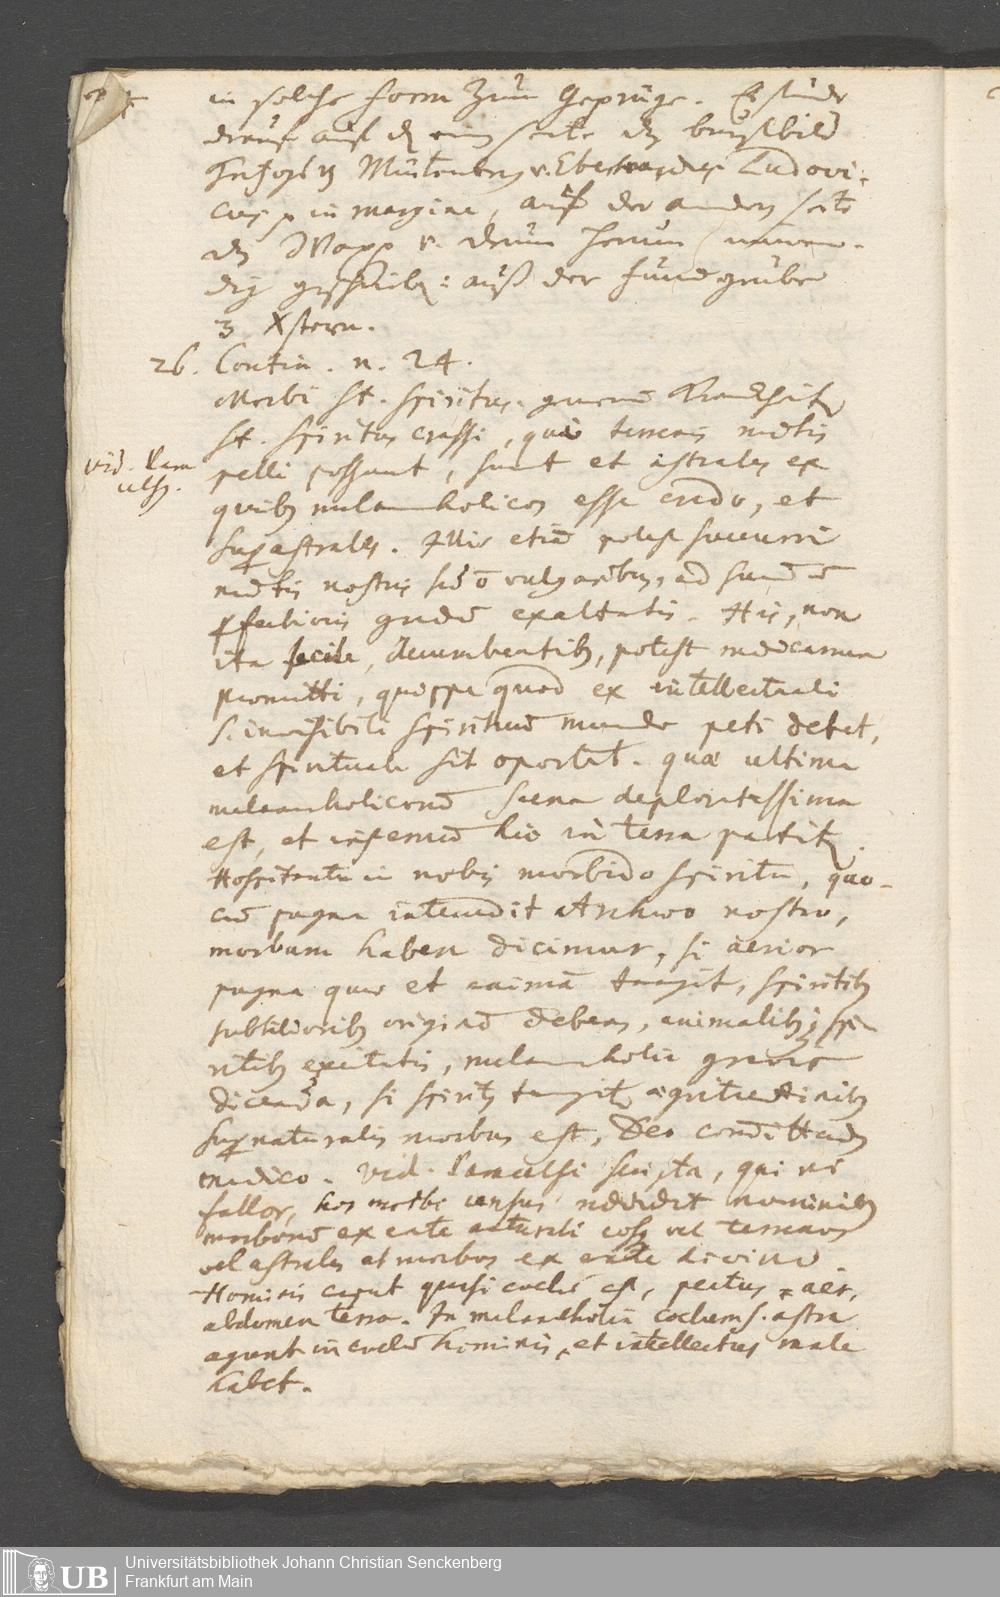 in solche form zum Gepräge. Es stunde
drauf auf d. einen seite das brustbild
Herzogs v. Würtenberg v. Eberhardus Ludovi-
cus p in margine, auf der andern seite
das Wapp v. drum herum
dig geschrieben: auß der fundgrube
3 Xstern.
26. Contin. n. 24.
Morbi st. spiritus. quorum
st. spiritus crassi, qui terreis mdtis
vid. Para
cels.
pelli possunt, sunt et astrales ex
quibus melancholicos esse credo, et
supastrales. Illis etiã potest succurri
mdtis nostris sed õ vulgaribus, ad sum̄ũ
pfectionis gradũ exaltatis. His, non
ita facile, decumbentib, potest medicamen
promitti, quippe quod ex intellectuali
s. invisibili spirituũ mundo peti debet,
et spirituale sit oportet. quæ ultima
melancholicorũ scena deploratissima
est, et infernũ hic in terra patitur.
Hospitante in nobis morbido spiritu, quo-
cũ pugna intercedit Archæo nostro,
morbum habere dicimur, si acrior
pugna quæ et animã tangit, spiritib
subtiliorib originẽ debens, animalib spi
ritib excitatis, melancholia gravis
dicenda, si spirit tangit,
supnaturalis morbus est, Deo
medico. Vid. Paracelsi scripta, qui ni
fallor, hos morbi nominib
morborũ ex ente naturali eosq vel terrenos
vel astrales et morbos ex ente divino.
Hominis caput quasi coelũ est, pectus aer,
abdomen terra. In melancholia coelum s. astra
agunt in coelũ hominis, et intellectus male
habet.
UB
Universitätsbibliothek Johann Christian Senckenberg
Frankfurt am Main